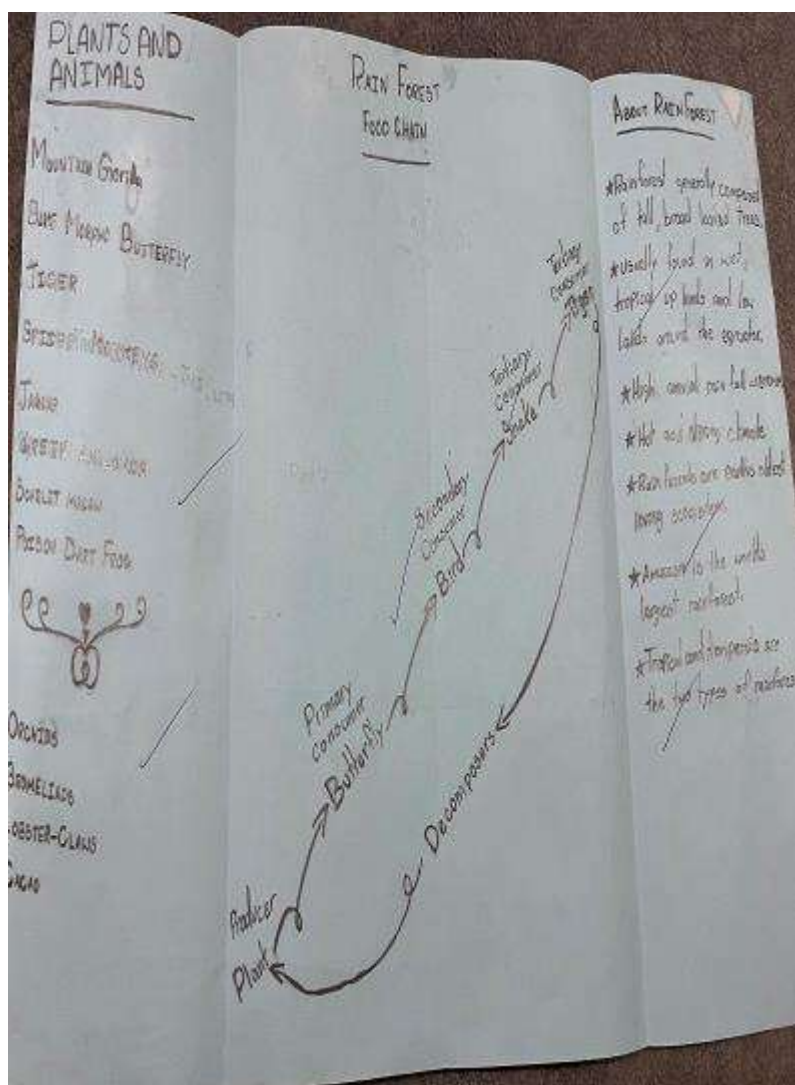 PLANTS AND
ANIMALS
MOUNTAIN Gorilla
BLUE MORPHO BUTTERFLY
TIGER
POISON DART FROG
ORCHIDS
BROMELIADS
LOBSTER-CLAWS
CACAO
RAIN FOREST
FOOD CHAIN
Tertiary
Consumer
Tertiary
Consumer
Snake
Secondary
Consumer
Bird
Primary
Consumer
Butterfly
Decomposers
Producer
Plant
ABOUT RAINFOREST
*Rainforest generally composed
of tall, broad leaved trees.
*Usually found in wet,
tropical up lands and low
lands around the equator.
*High annual rain fall
*Hot and climate
*Rainforests are earths oldest
living ecosystems
*Amazon is the worlds
largest rainforest.
*Tropical and temperate are
the two types of rainforest